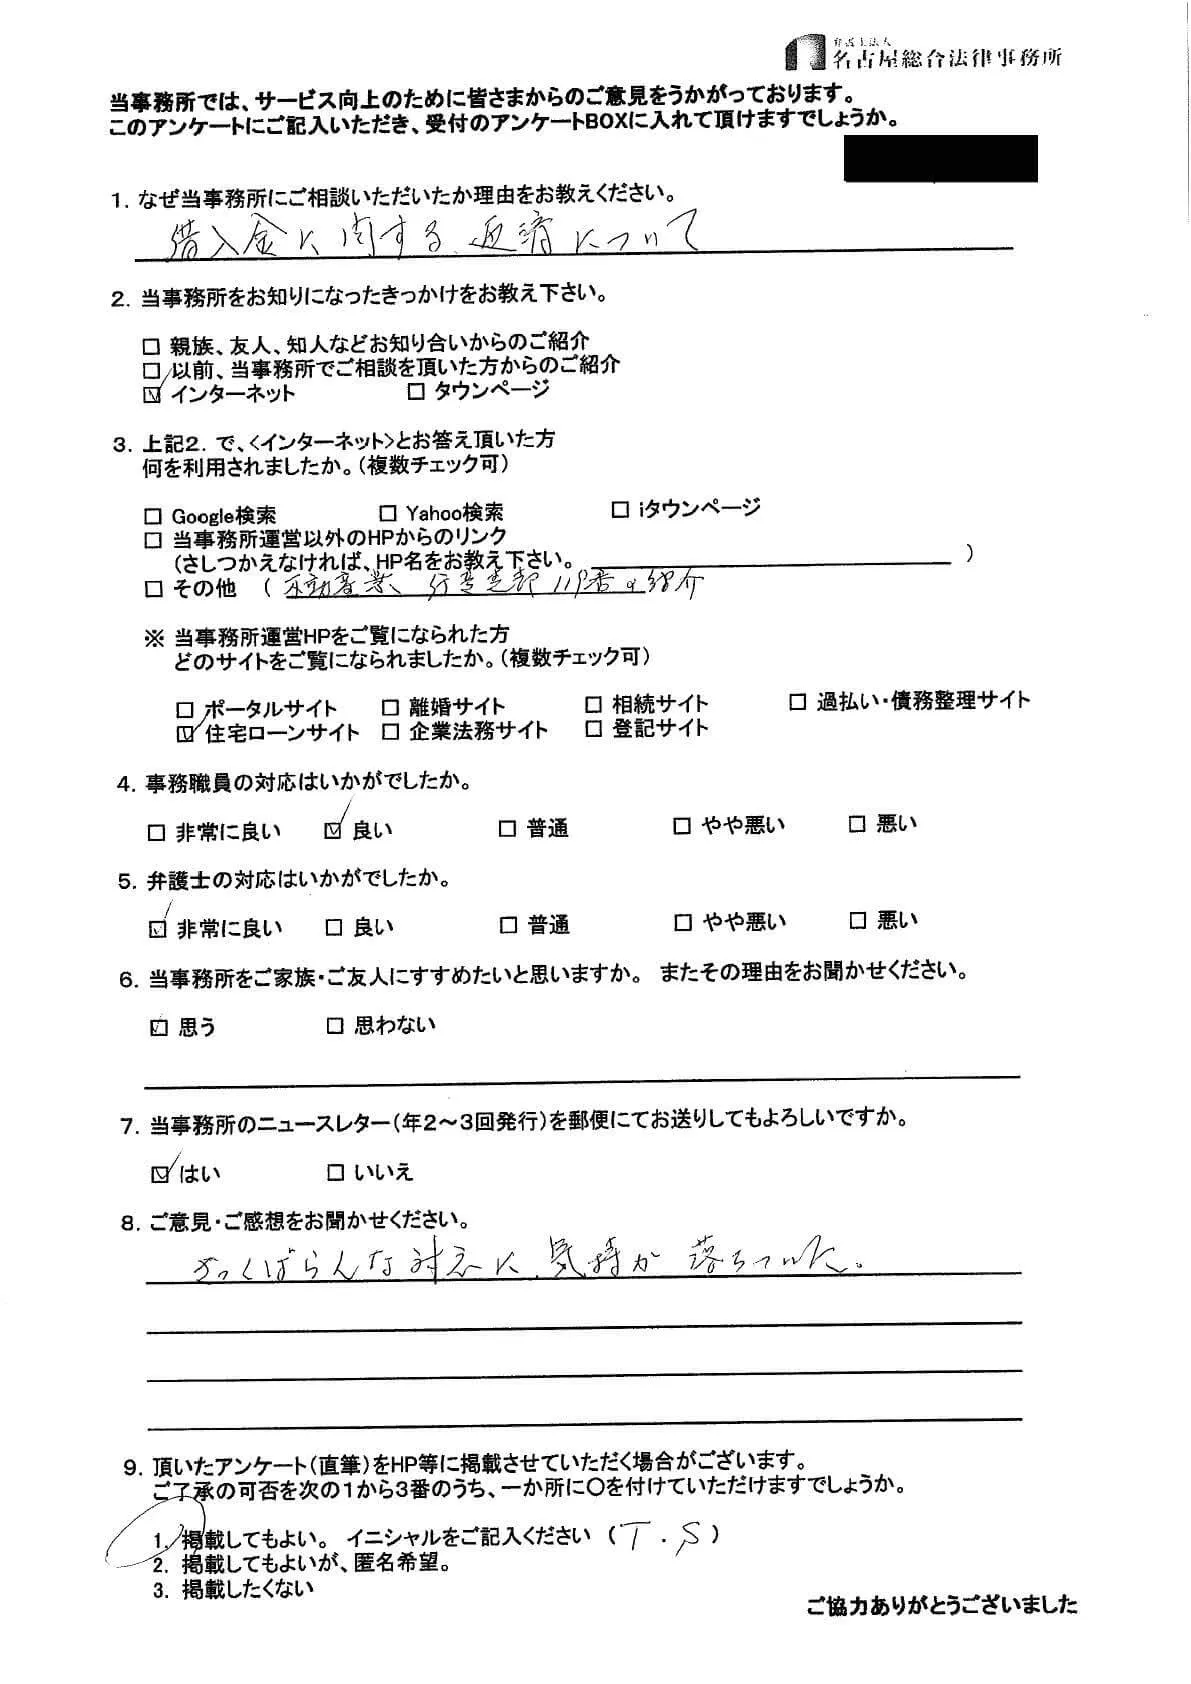 弁護士法人
名古屋総合法律事務所
当事務所では、サービス向上のために皆さまからのご意見をうかがっております。
このアンケートにご記入いただき、受付のアンケートBOXに入れて頂けますでしょうか。
1. なぜ当事務所にご相談いただいたか理由をお教えください。
借入金に関する、返済について
2. 当事務所をお知りになったきっかけをお教え下さい。
□ 親族、友人、知人などお知り合いからのご紹介
□ 以前、当事務所でご相談を頂いた方からのご紹介
☑ インターネット □ タウンページ
3. 上記2. で、<インターネット>とお答え頂いた方
何を利用されましたか。(複数チェック可)
□ Google検索 □ Yahoo検索 □ iタウンページ
□ 当事務所運営以外のHPからのリンク
(さしつかえなければ、HP名をお教え下さい。 )
□ その他 ( 不動産業 119番の紹介
※ 当事務所運営HPをご覧になられた方
どのサイトをご覧になられましたか。(複数チェック可)
□ ポータルサイト □ 離婚サイト □ 相続サイト □ 過払い・債務整理サイト
☑ 住宅ローンサイト □ 企業法務サイト □ 登記サイト
4. 事務職員の対応はいかがでしたか。
□ 非常に良い ☑ 良い □ 普通 □ やや悪い □ 悪い
5. 弁護士の対応はいかがでしたか。
☑ 非常に良い □ 良い □ 普通 □ やや悪い □ 悪い
6. 当事務所をご家族・ご友人にすすめたいと思いますか。 またその理由をお聞かせください。
☑ 思う □ 思わない
7. 当事務所のニュースレター(年2~3回発行)を郵便にてお送りしてもよろしいですか。
☑ はい □ いいえ
8. ご意見・ご感想をお聞かせください。
ざっくばらんな対応に、気持が落ちついた。
9. 頂いたアンケート(直筆)をHP等に掲載させていただく場合がございます。
ご了承の可否を次の1から3番のうち、一か所に○を付けていただけますでしょうか。
1. 掲載してもよい。 イニシャルをご記入ください ( T.S )
2. 掲載してもよいが、匿名希望。
3. 掲載したくない
ご協力ありがとうございました